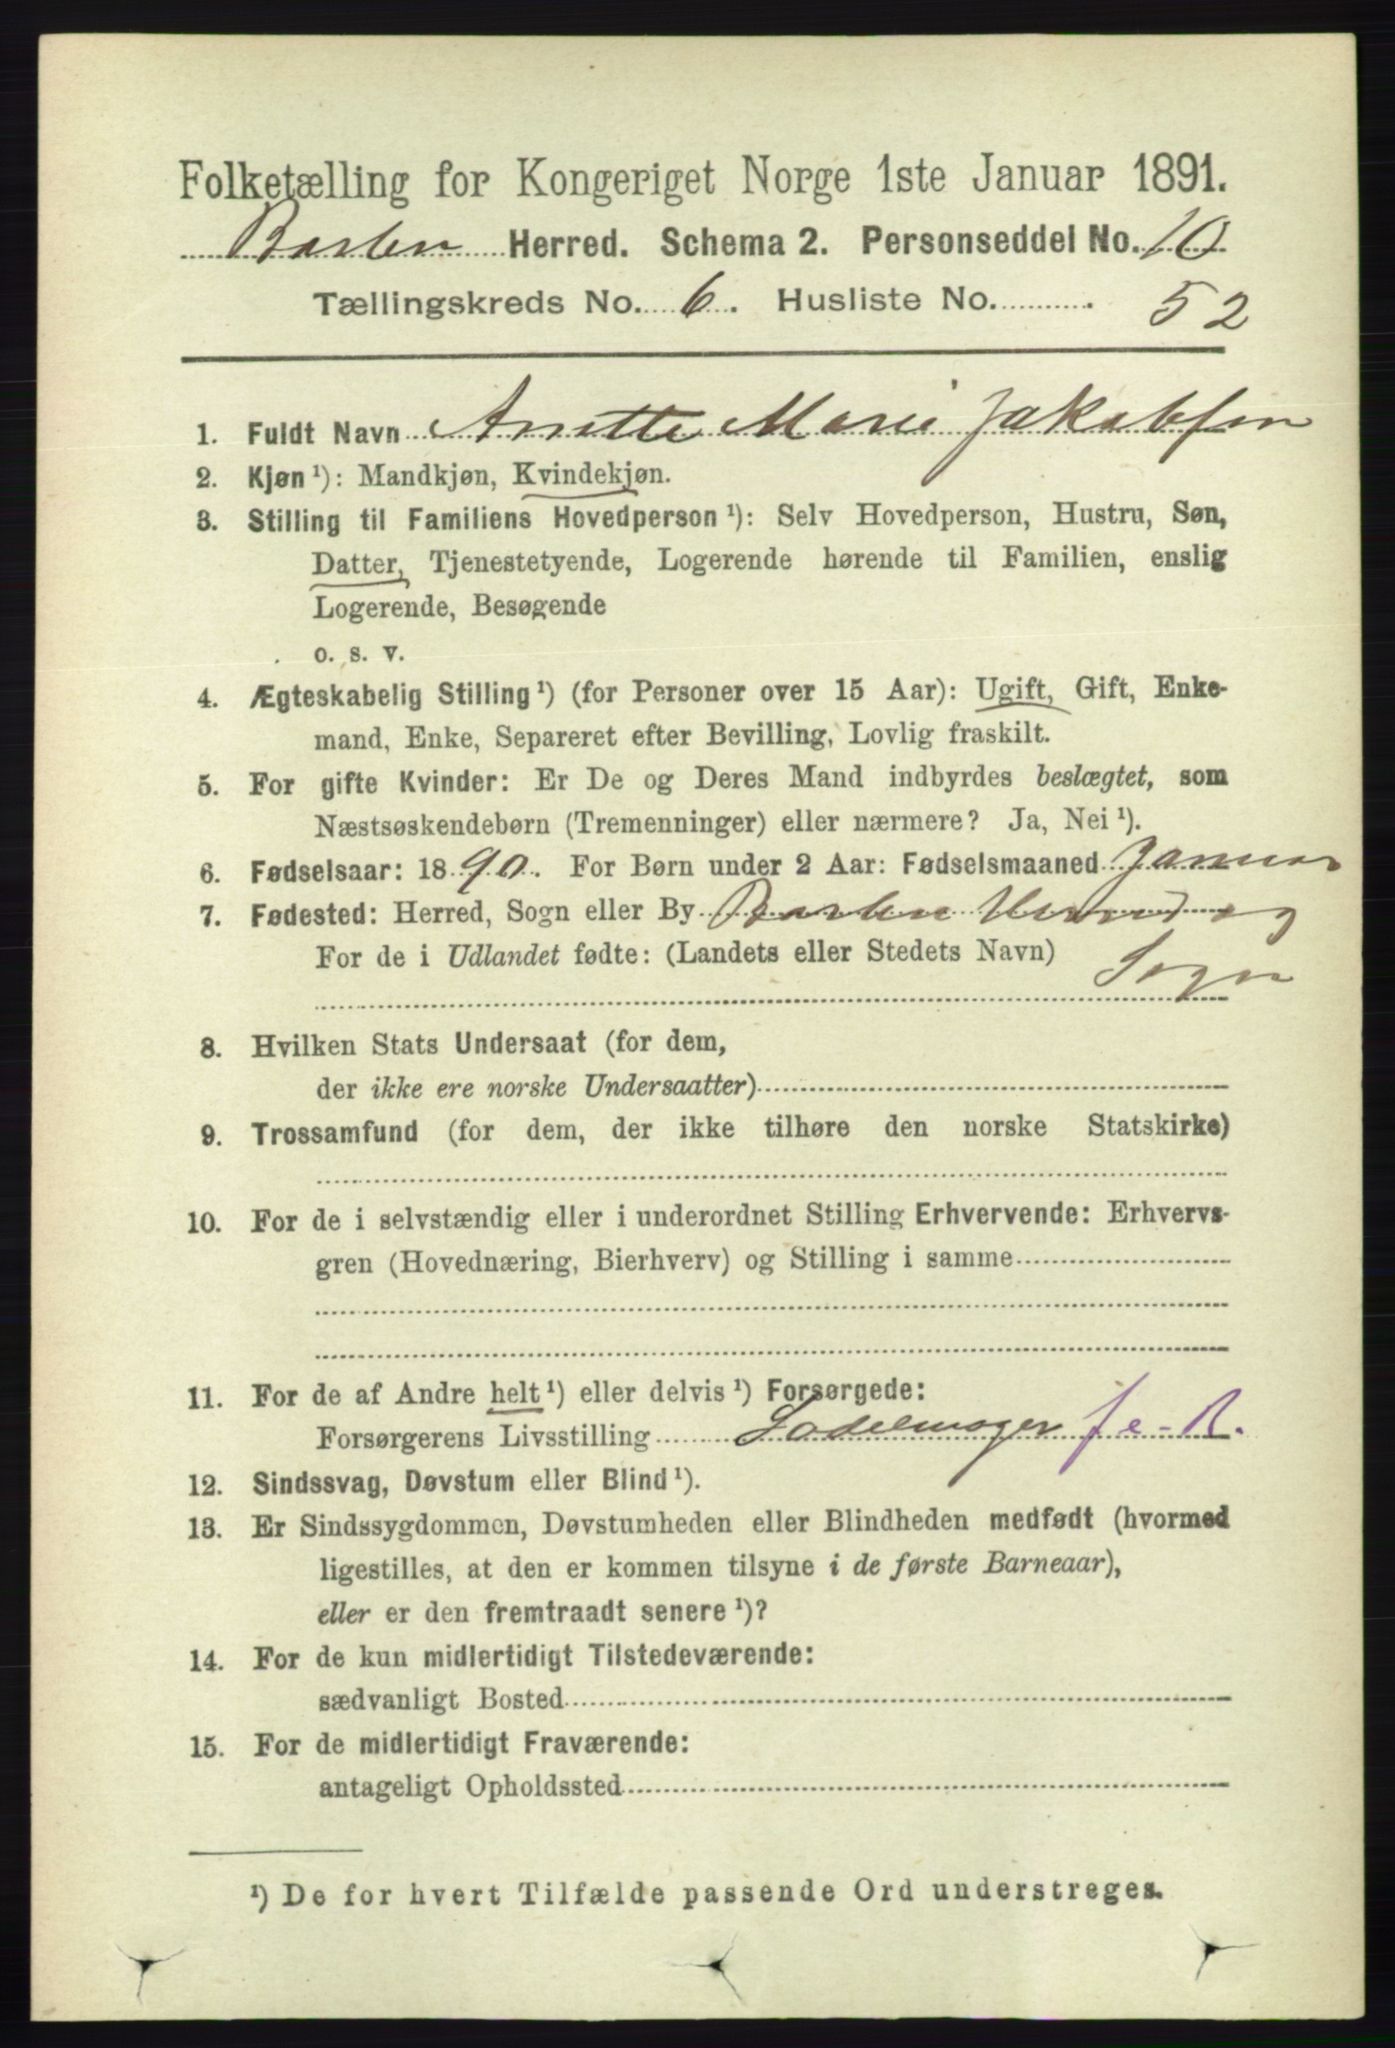 Folketælling for Kongeriget Norge 1ste Januar 1891.
Herred. Schema 2. Personseddel No. 10
Tællingskreds No. 6. Husliste No. .
52
1. Fuldt Navn Anette Marie Jakobsen
2. Kjøn ¹): Mandkjøn, Kvindekjøn.
3. Stilling til Familiens Hovedperson ¹): Selv Hovedperson, Hustru, Søn,
Datter, Tjenestetyende, Logerende hørende til Familien, enslig
Logerende, Besøgende
o. s. v.
4. Ægteskabelig Stilling ¹) (for Personer over 15 Aar): Ugift, Gift, Enke-
mand, Enke, Separeret efter Bevilling, Lovlig fraskilt.
5. For gifte Kvinder: Er De og Deres Mand indbyrdes beslægtet, som
Næstsøskendebørn (Tremenninger) eller nærmere? Ja, Nei ¹).
6. Fødselsaar: 1890. For Børn under 2 Aar: Fødselsmaaned Januar
7. Fødested: Herred, Sogn eller By Herred og
For de i Udlandet fødte: (Landets eller Stedets Navn) Sogn
8. Hvilken Stats Undersaat (for dem,
der ikke ere norske Undersaatter)
9. Trossamfund (for dem, der ikke tilhøre den norske Statskirke)
10. For de i selvstændig eller i underordnet Stilling Erhvervende: Erhvervs-
gren (Hovednæring, Bierhverv) og Stilling i samme
11. For de af Andre helt ¹) eller delvis ¹) Forsørgede:
Forsørgerens Livsstilling
12. Sindssvag, Døvstum eller Blind ¹).
13. Er Sindssygdommen, Døvstumheden eller Blindheden medfødt (hvormed
ligestilles, at den er kommen tilsyne i de første Barneaar),
eller er den fremtraadt senere ¹)?
14. For de kun midlertidigt Tilstedeværende:
sædvanligt Bosted
15. For de midlertidigt Fraværende:
antageligt Opholdssted
¹) De for hvert Tilfælde passende Ord understreges.